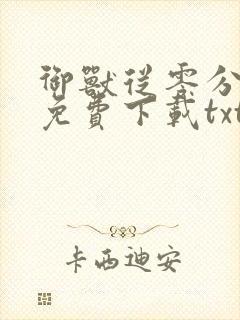 御獸從零分
免費下載txt
卡西迪安